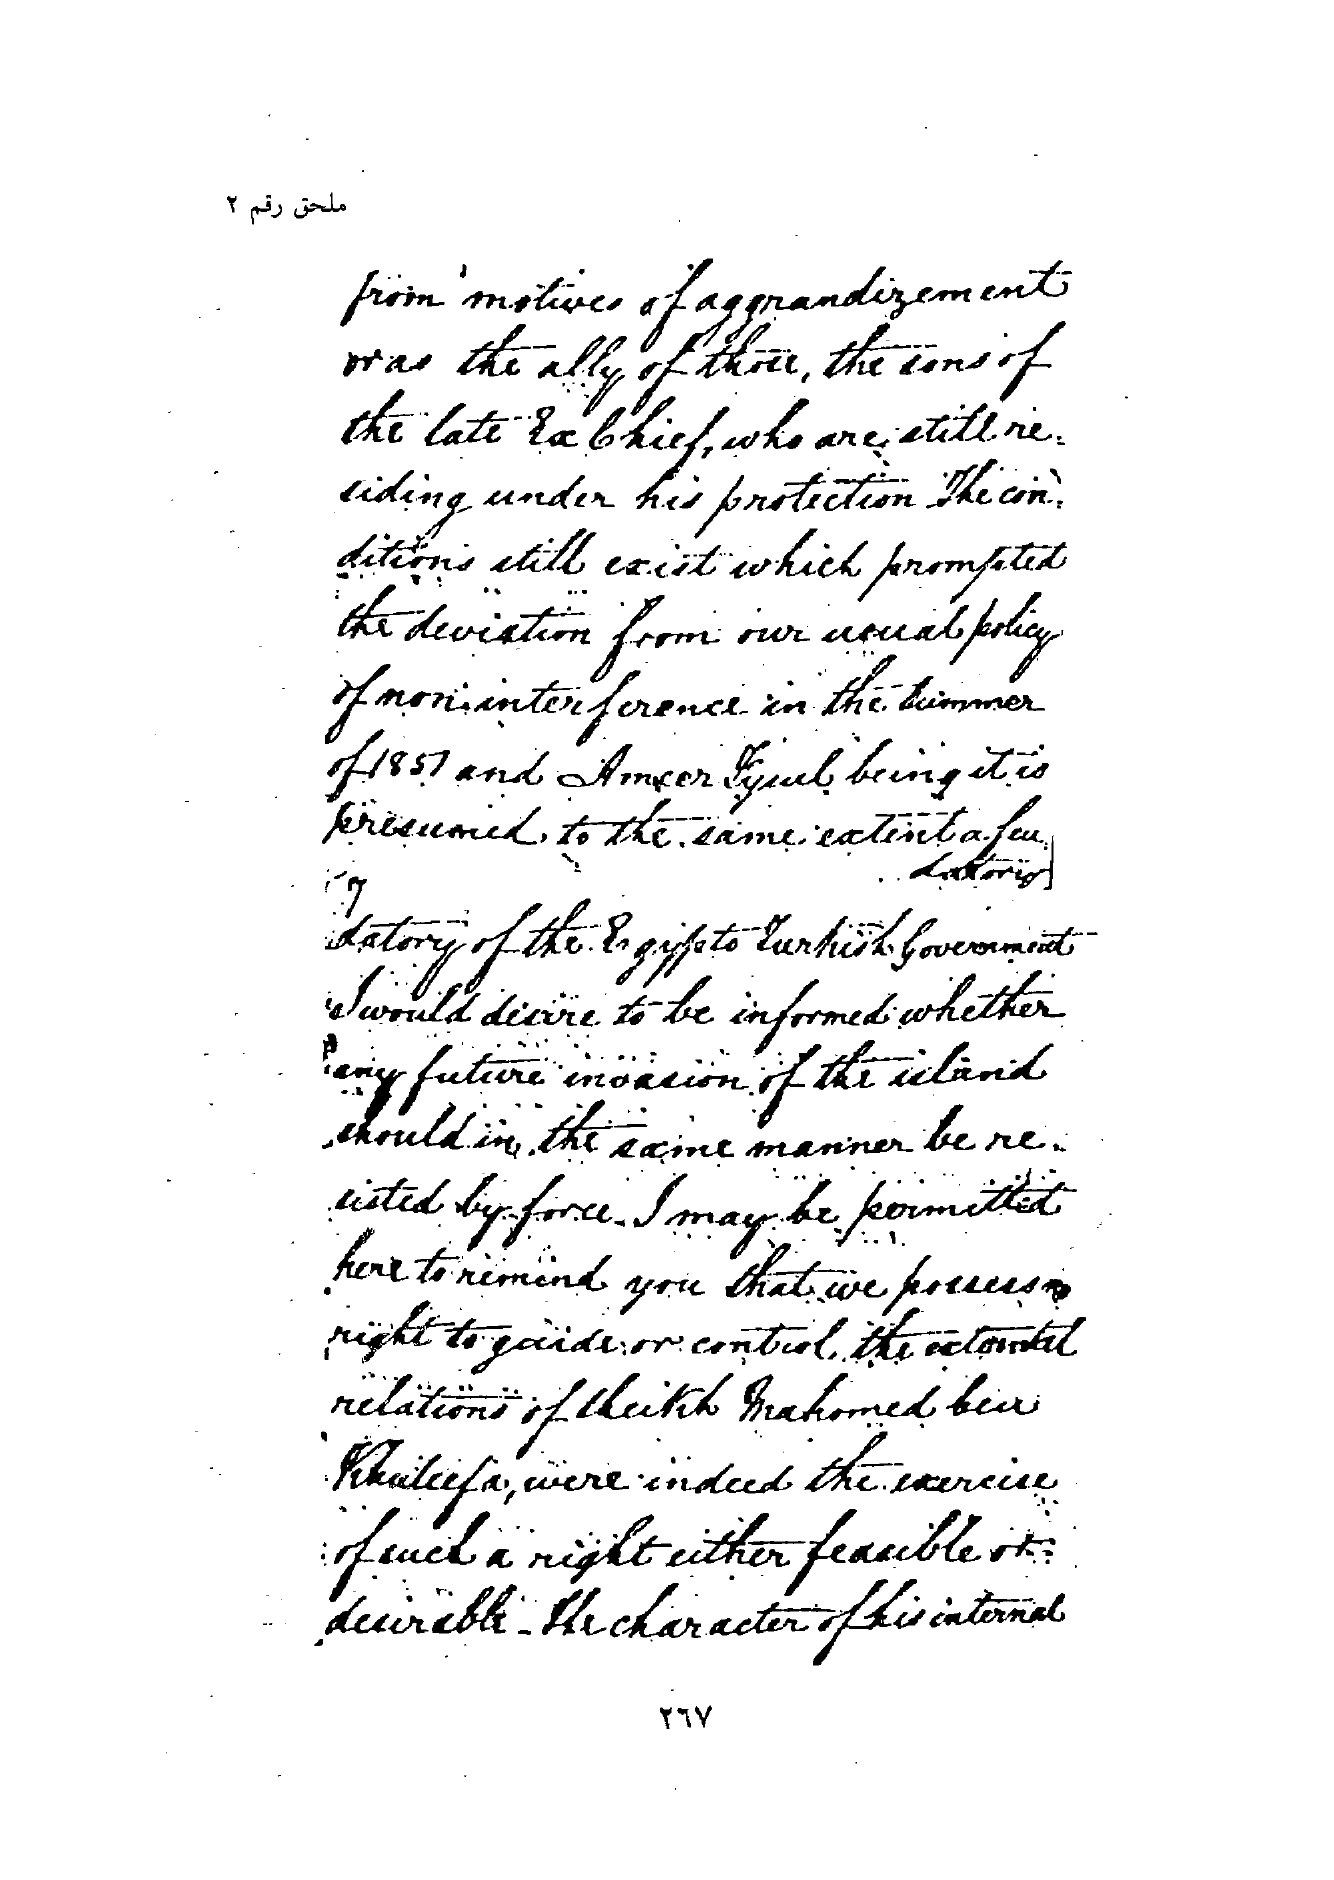 ملحق رقم ٢
from motives of aggrandizement
or as the ally of those, the sons of
the late Ex Chief, who are still re-
siding under his protection The con-
ditions still exist which prompted
the deviation from our usual policy
of non-interference in the Summer
of 1851 and Ameer Fysul being it is
presumed to the same extent a feu
datory
7
datory of the Egypto Turkish Government
I would desire to be informed whether
any future invasion of the island
should in the same manner be re-
sisted by force. I may be permitted
here to remind you that we possess no
right to guide or control the external
relations of Sheikh Mahomed bin
Khuleefa, were indeed the exercise
of such a right either feasible or
desirable - The character of his internal
٢٦٧